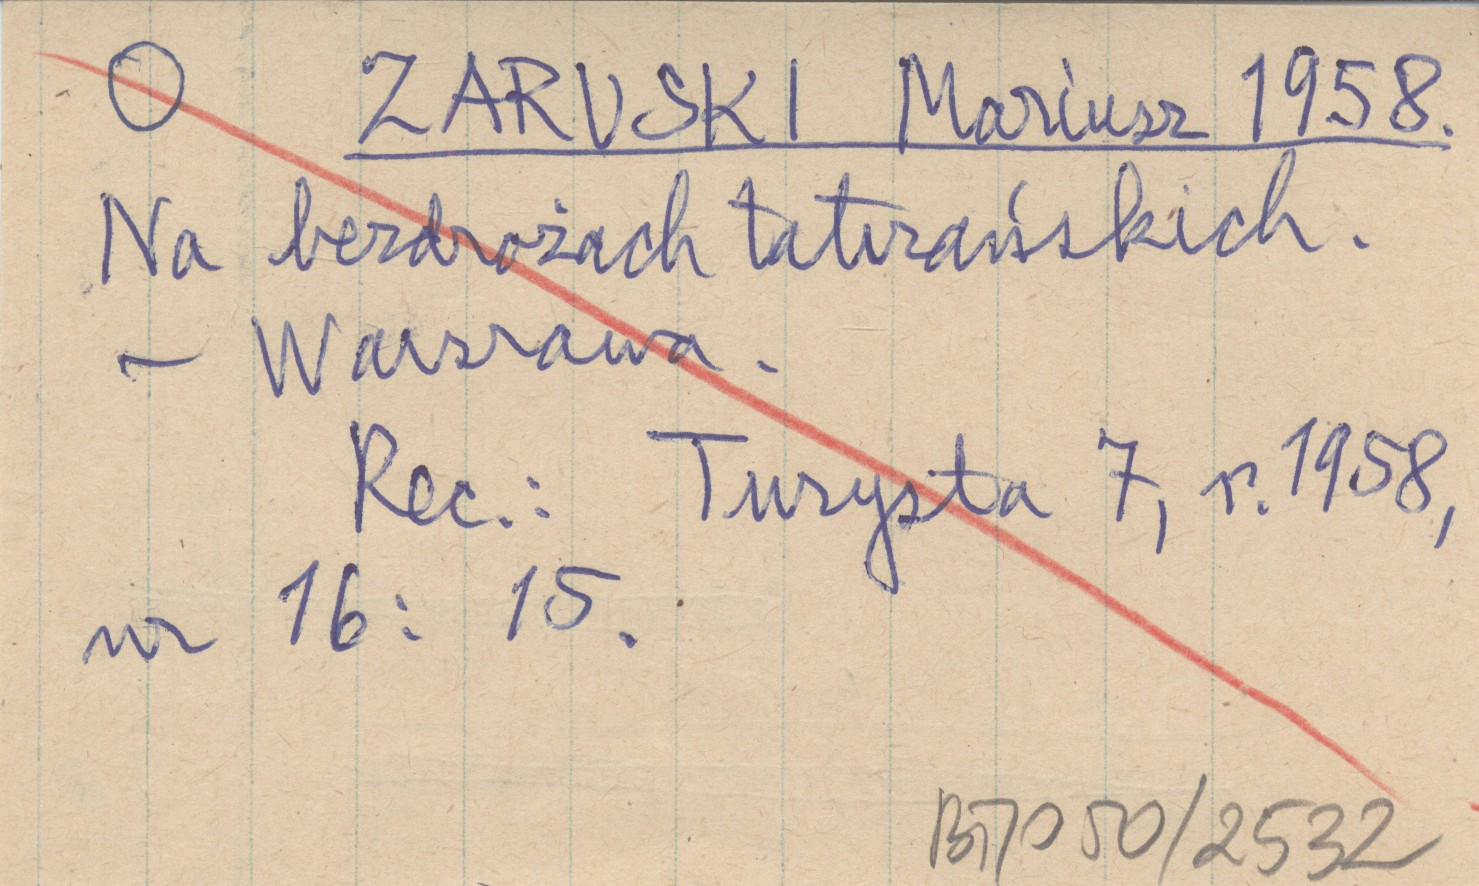 O ZARUSKI Mariusz 1958.
Na bezdrożach tatrzańskich.
– Warszawa.
Rec.: Turysta 7, r. 1958,
nr 16: 15.
BTP 50/2532